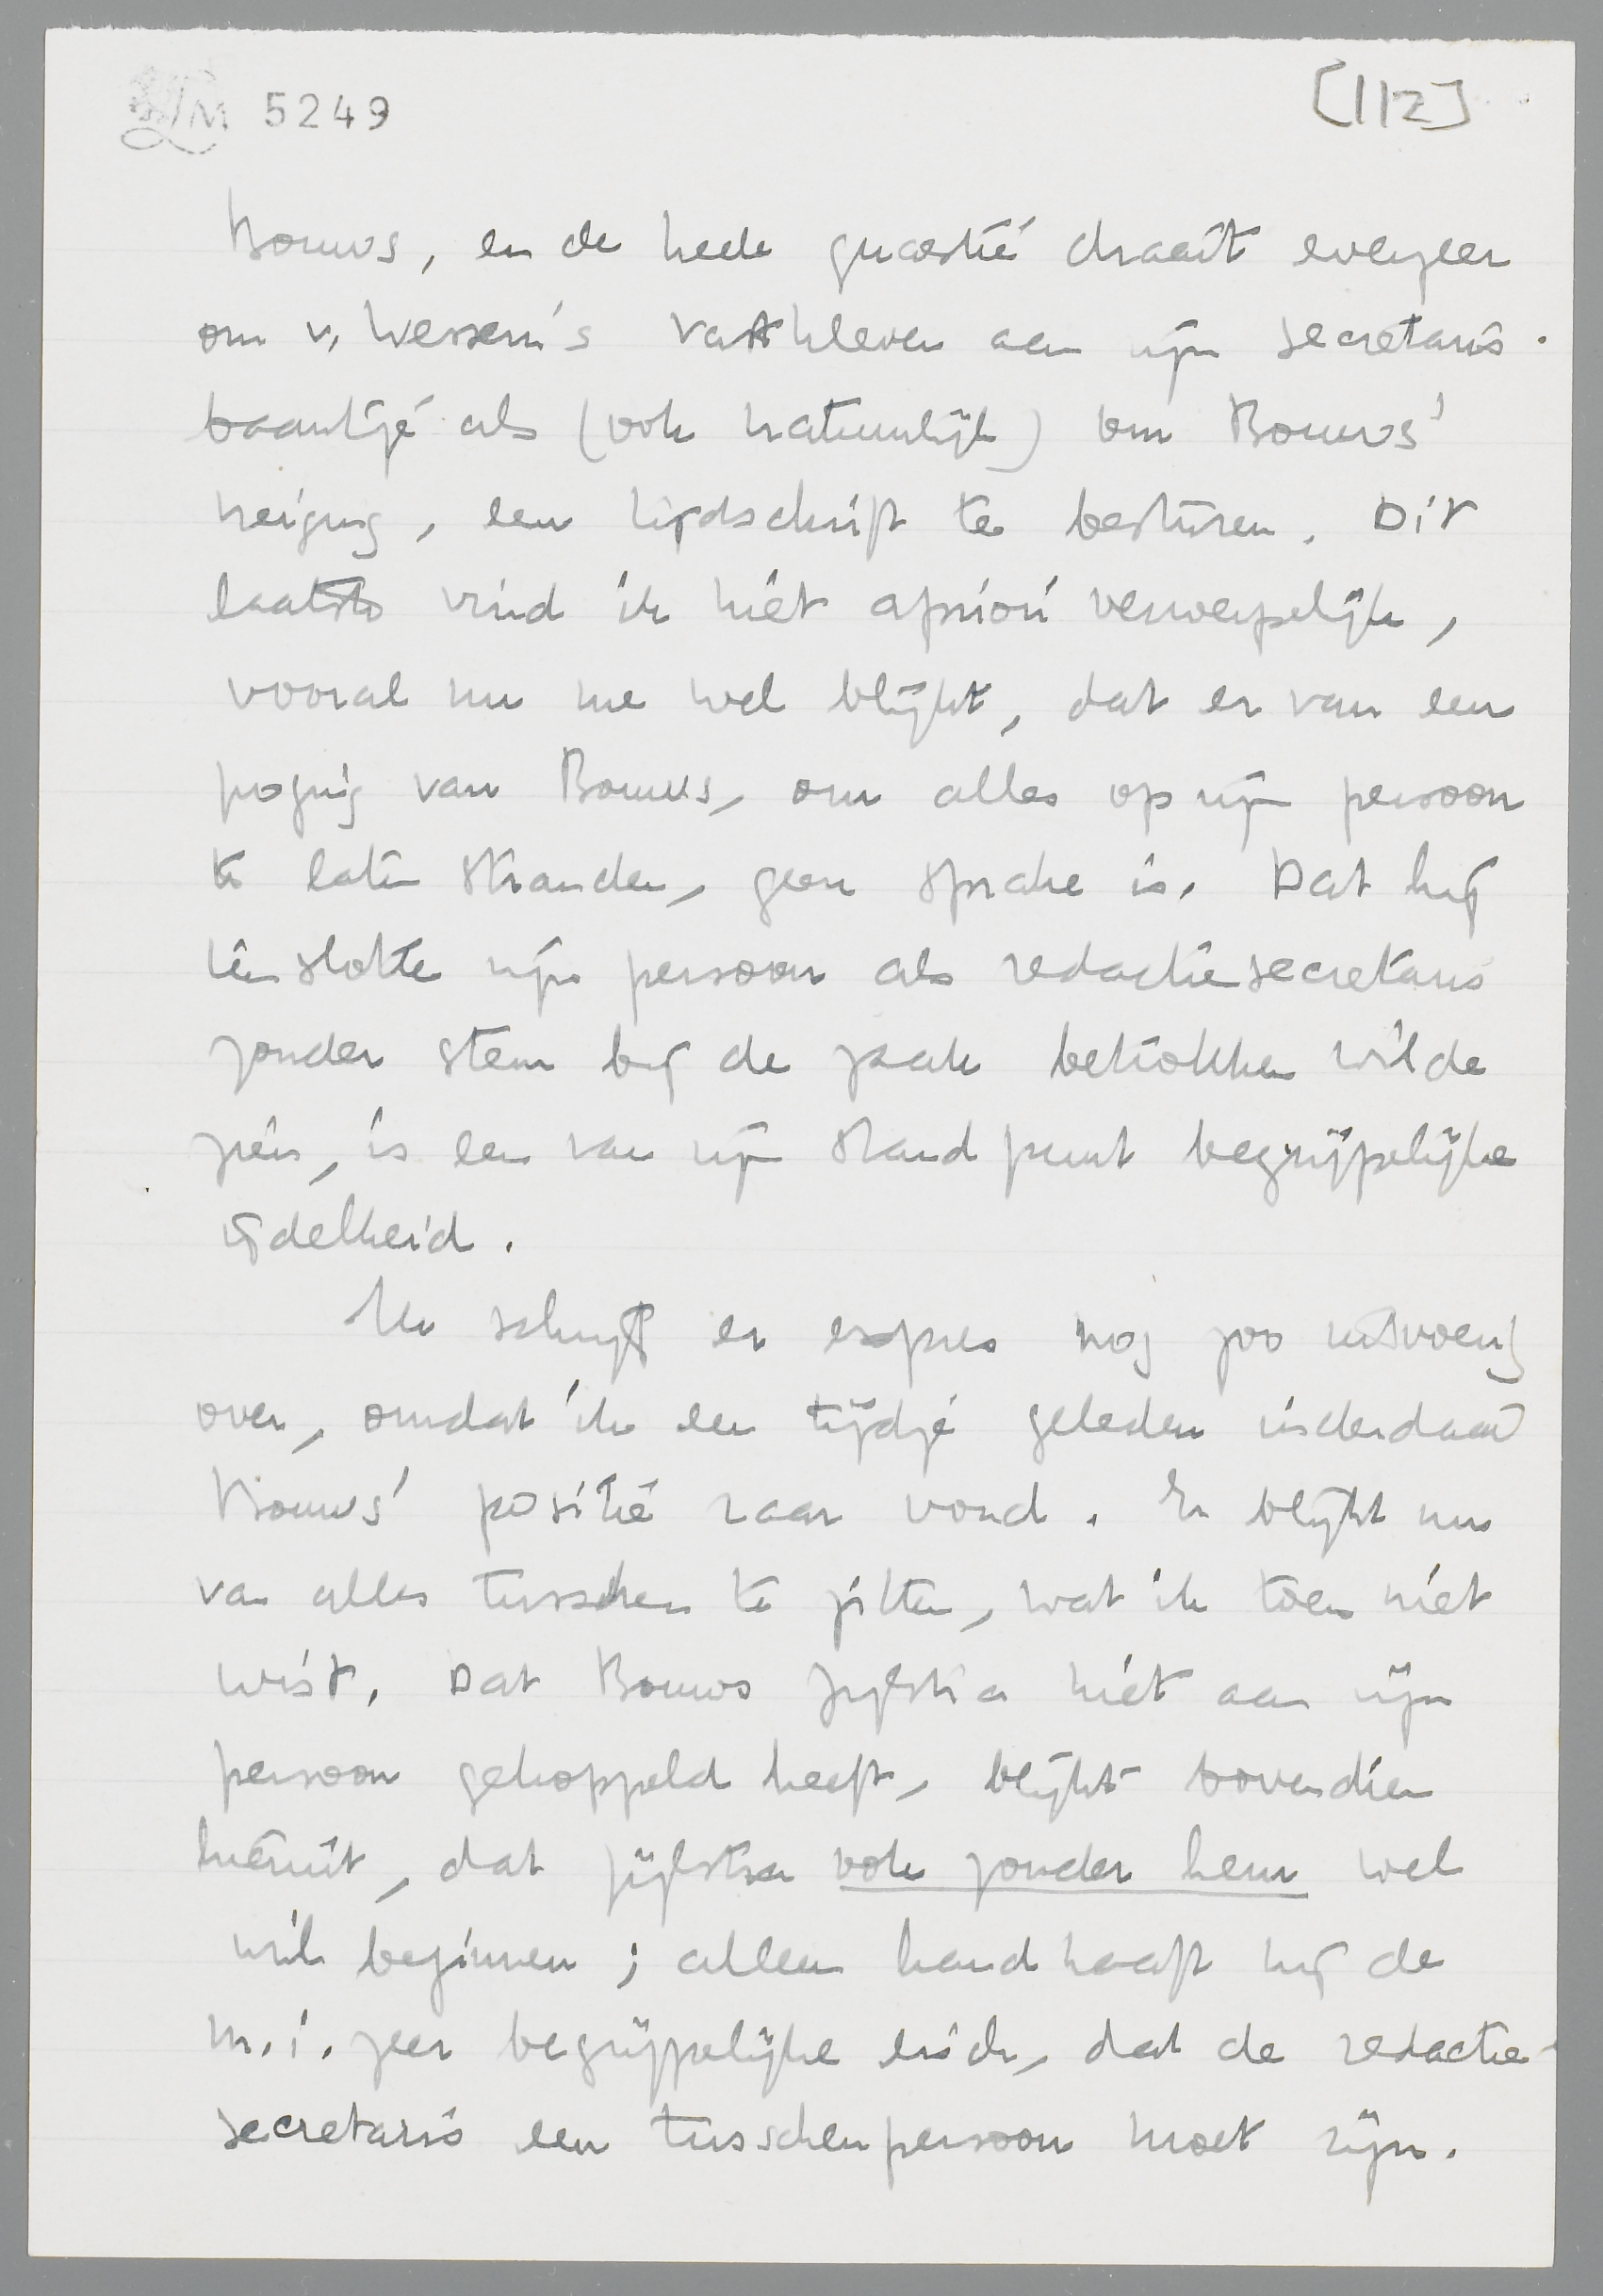 LM 5249
[112]
Bouws, en de heele quaestie draait evenzeer
om v. Wessem's vastkleven aan zijn secretaris-
baantje als (ook natuurlijk) om Bouws'
neiging, een tijdschrift te besturen. Dit
laatste vind ik niet apriori verwerpelijk,
vooral nu me wel blijkt, dat er van een
poging van Bouws, om alles op zijn persoon
te laten stranden, geen sprake is. Dat hij
tenslotte zijn persoon als redactiesecretaris
zonder stem bij de zaak betrokken wilde
zien, is een van zijn standpunt begrijpelijke
ijdelheid.
Ik schrijf er expres nog zoo uitvoerig
over, omdat ik een tijdje geleden inderdaad
Bouws' positie raar vond. Er blijkt nu
van alles tusschen te zitten, wat ik toen niet
wist. Dat Bouws Zijlstra niet aan zijn
persoon gekoppeld heeft, blijkt bovendien
hieruit, dat Zijlstra ook zonder hem wel
wil beginnen; alleen handhaaft hij de
m.i. zeer begrijpelijke eisch, dat de redactie-
secretaris een tusschenpersoon moet zijn.